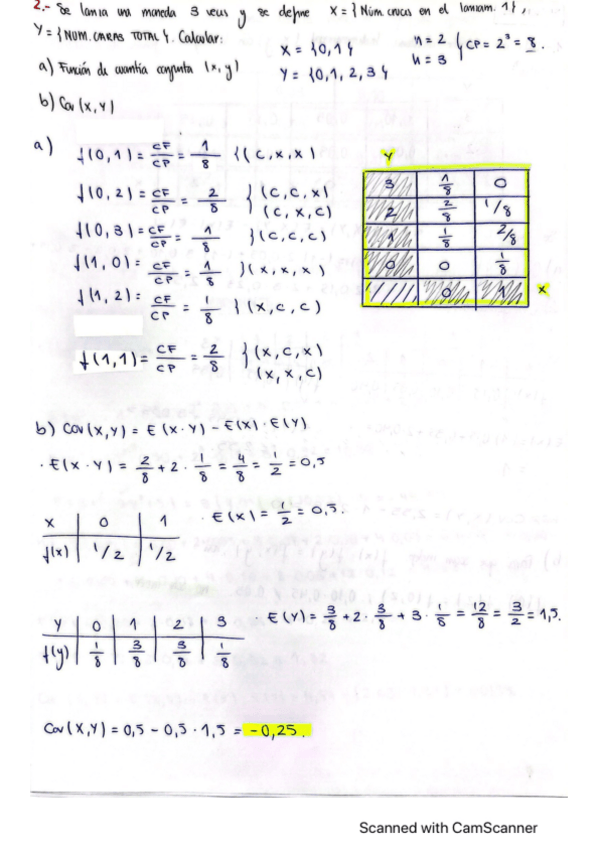 2.- Se lanza una moneda 3 veces y se define X = { Núm. cruces en el lanzam. 1 },
Y = { NUM. CARAS TOTAL }. Calcular:
X = {0, 1}
Y = {0, 1, 2, 3}
n = 2
h = 3
CP = 2³ = 8.
a) Función de cuantía conjunta (x, y)
b) Cov (X, Y)
a)
f(0, 1) = CF/CP = 1/8 {(C, X, X)
f(0, 2) = CF/CP = 2/8 } (C, C, X)
(C, X, C)
f(0, 3) = CF/CP = 1/8 }(C, C, C)
f(1, 0) = CF/CP = 1/8 }(X, X, X)
f(1, 2) = CF/CP = 1/8 {(X, C, C)
f(1, 1) = CF/CP = 2/8 } (X, C, X)
(X, X, C)
Y
3 1/8 0
2 2/8 1/8
1 1/8 2/8
0 0 1/8
0 1 X
b) Cov (X, Y) = E (X · Y) - E(X) · E(Y).
· E(X · Y) = 2/8 + 2 · 1/8 = 4/8 = 1/2 = 0,5
X 0 1
f(x) 1/2 1/2
· E(X) = 1/2 = 0,5.
Y 0 1 2 3
f(y) 1/8 3/8 3/8 1/8
E(Y) = 3/8 + 2 · 3/8 + 3 · 1/8 = 12/8 = 3/2 = 1,5.
Cov (X, Y) = 0,5 - 0,5 · 1,5 = -0,25.
Scanned with CamScanner